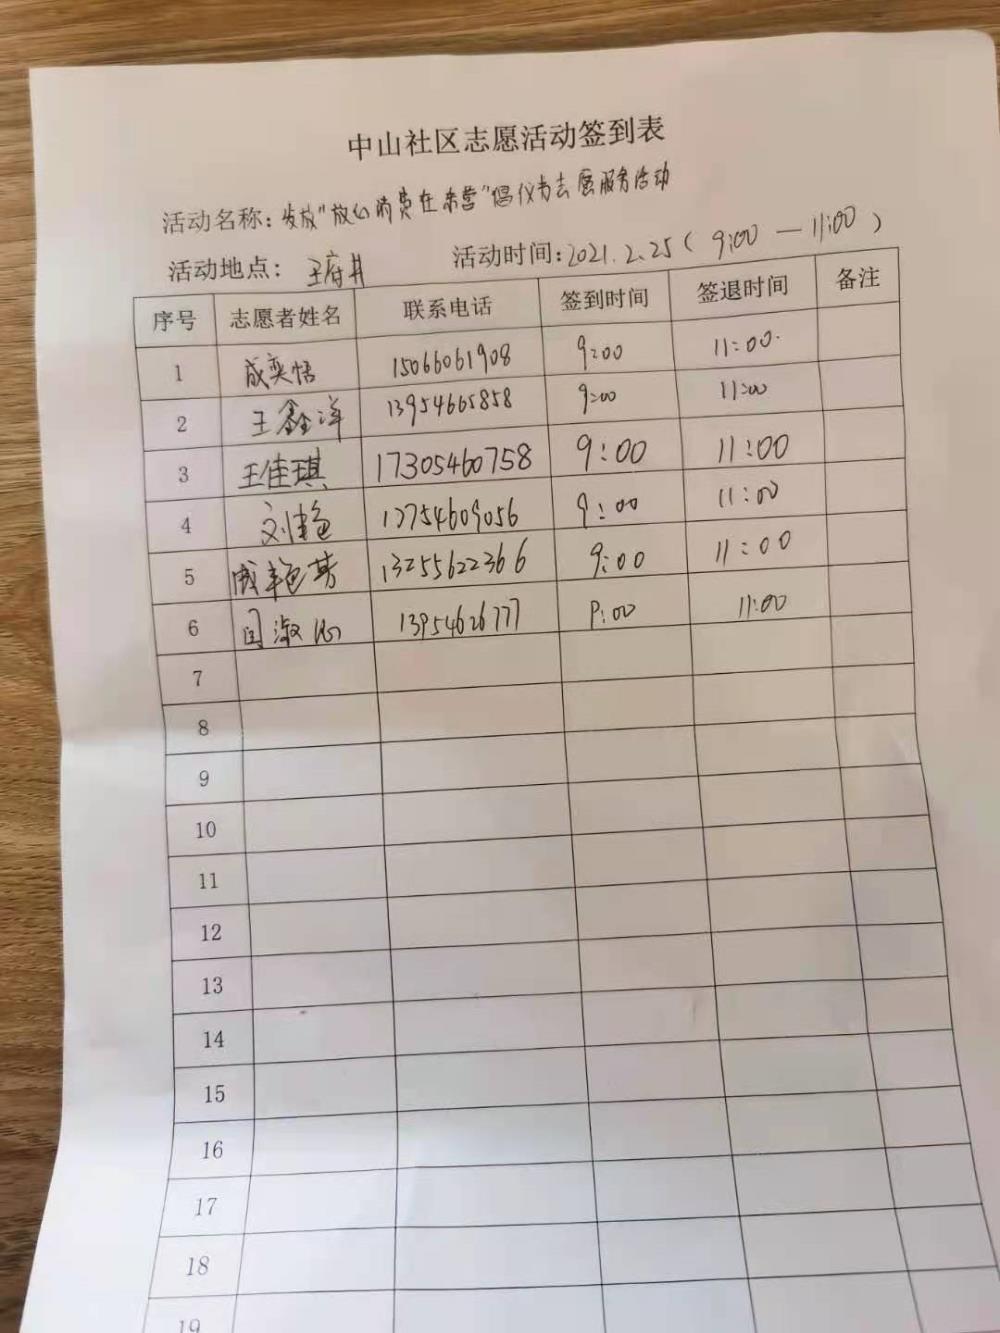 中山社区志愿活动签到表
活动名称：发放"放心消费在东营"倡仪书志愿服务活动
活动地点：王府井 活动时间：2021.2.25（9:00—11:00）
序号 志愿者姓名 联系电话 签到时间 签退时间 备注
1 成奕恬 15066061908 9:00 11:00
2 王鑫洋 13954665858 9:00 11:00
3 王佳琪 17305460758 9:00 11:00
4 刘 12754609056 9:00 11:00
5 13255622366 9:00 11:00
6 闫淑 13954626777 9:00 11:00
7
8
9
10
11
12
13
14
15
16
17
18
19